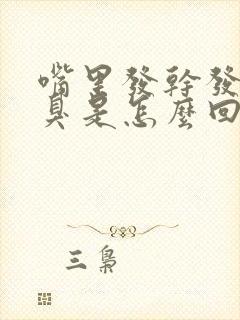 嘴里發幹發
臭是怎麼回
三梟